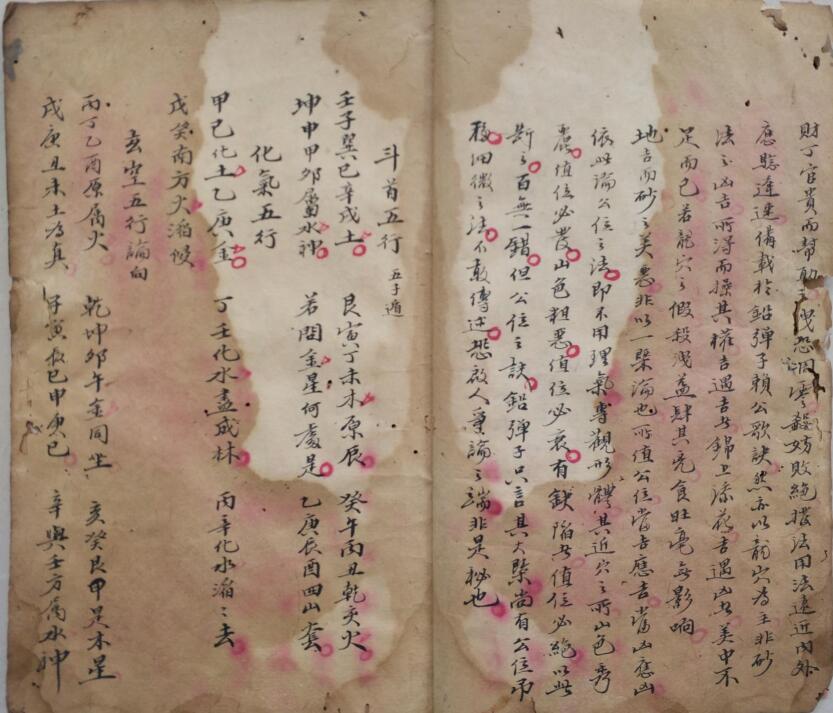 財丁官貴而幫助之洩恐凋零殺妨敗絕撥法用法遠近內外
應驗遲速備載於鉛彈子賴公歌訣然亦以龍穴為主非砂
法之凶吉所得而操其權吉遇吉如錦上添花吉遇凶如美中不
足而已若龍穴之假殺洩並肆其克食旺毫無影響
地吉而砂之美惡非以一槩論也所值公位當吉應吉當凶應凶
依此論公位之法即不用理氣專觀形體其近穴之所山色秀
麗值位必發山色粗惡值位必衰有缺陷者值位必絕以此
斷之百無一錯但公位之訣鉛彈子只言其大槩尚有公位吊
移細微之法不敢傳述恐啟人爭論之端非是秘也
斗首五行 五子遁
壬子巽巳辛戌土 艮寅丁未木原辰 癸午丙丑乾亥火
坤申甲卯屬水神 若問金星何處是 乙庚辰酉四山套
化氣五行
甲己化土乙庚金 丁壬化木盡成林 丙辛化水滔滔去
戊癸南方火滔候
玄空五行論向
丙丁乙酉原屬火 乾坤卯午金同坐 亥癸艮甲是木星
戌庚丑未土為真 子寅辰巳甲庚巳 辛與壬方屬水神